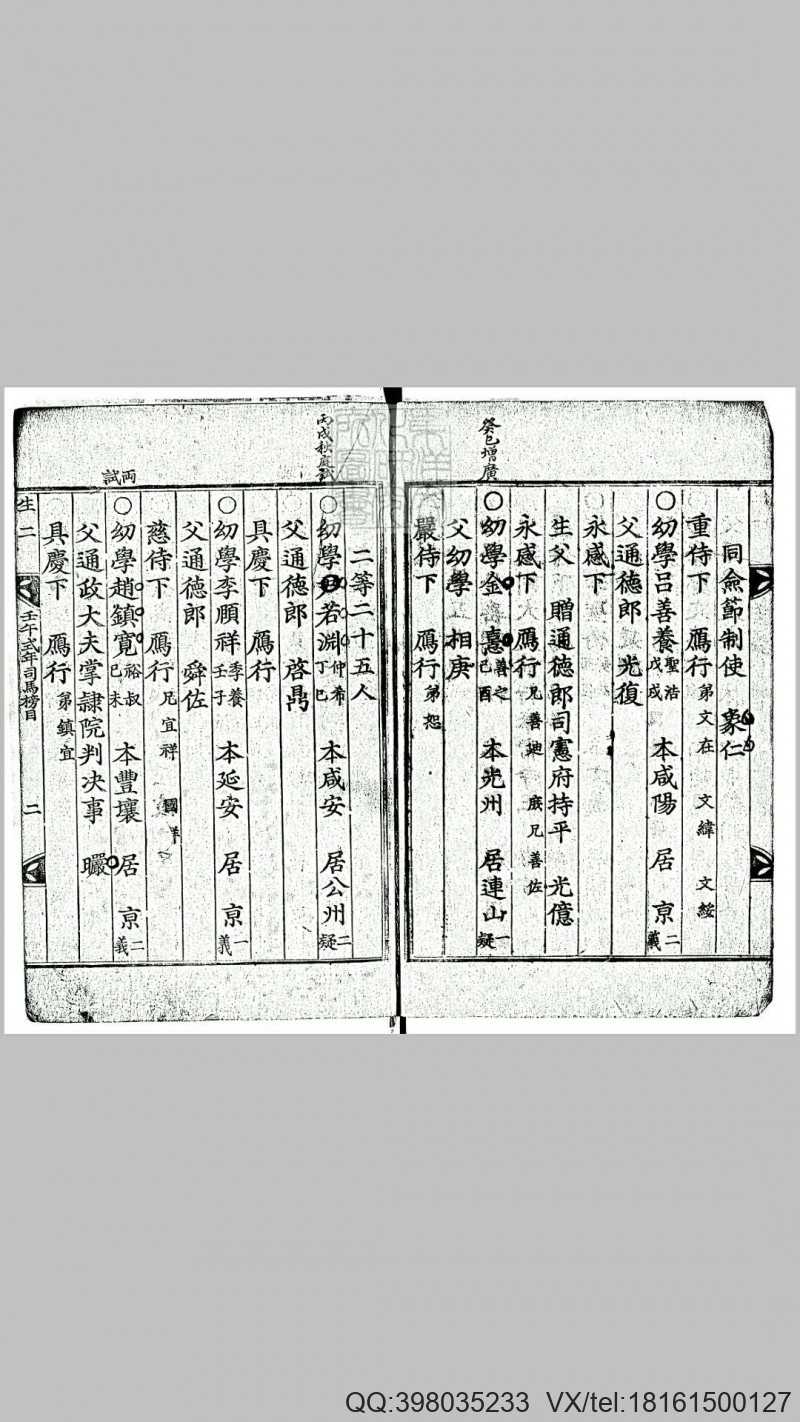 癸巳增廣
同僉節制使 象仁
重侍下 鴈行 弟文在 文緯 文綏
○幼學呂善養 聖浩 戊戌 本咸陽 居京 二義
父通德郎 光復
永感下
生父 贈通德郎司憲府持平 光億
永感下 鴈行 兄善述 庶兄善佐
○幼學金憙 善之 己酉 本光州 居連山 一疑
父幼學 相庚
嚴侍下 鴈行 弟恕
丙戌秋庭試
二等二十五人
○幼學 若淵 仲希 丁巳 本咸安 居公州 二疑
父通德郎 啓卨
具慶下 鴈行
○幼學李頤祥 季養 壬子 本延安 居京 一義
父通德郎 舜佐
慈侍下 鴈行 兄宜祥 國祥
両試
○幼學趙鎮寬 裕叔 己未 本豐壤 居京 二義
父通政大夫掌隷院判決事 曮
具慶下 鴈行 弟鎮宜
生二 壬午式年司馬榜目 二
QQ:398035233 VX/tel:18161500127